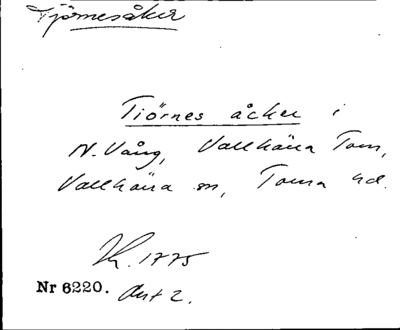 Tjörnesåker
Tiörnes åcker i
N. Vång, Vallkärra Tom,
Vallkärra sn, Torna hd.
Nr 6220. Akt 2.